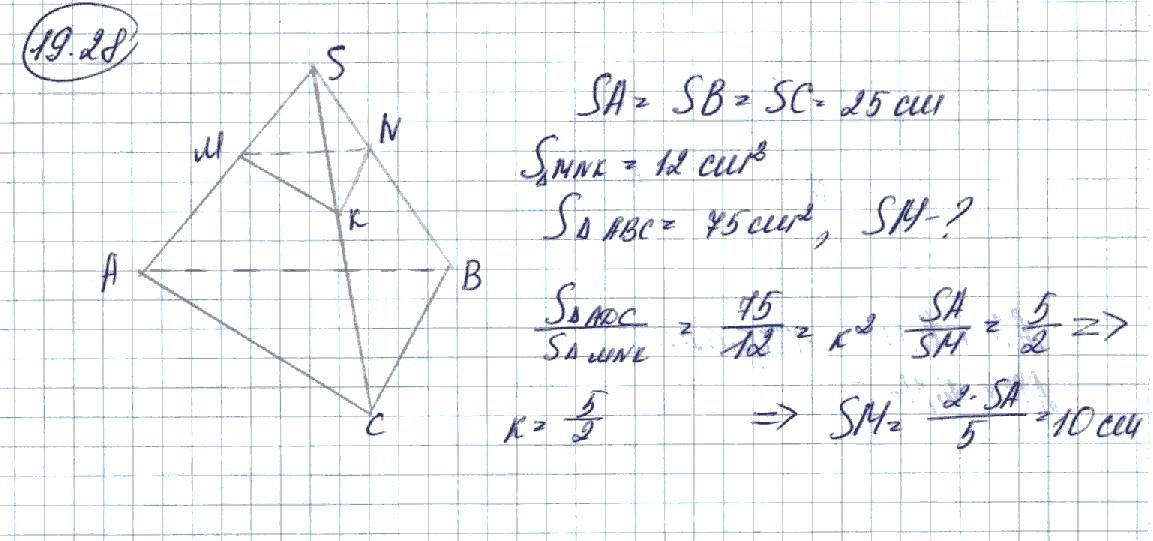 19.28
S
M
N
K
A
B
C
SA = SB = SC = 25 см
S△MNK = 12 см²
S△ABC = 75 см², SM - ?
S△ABC / S△MNK = 75/12 = K² SA/SM = 5/2 =>
K = 5/2 => SM = 2·SA/5 = 10 см